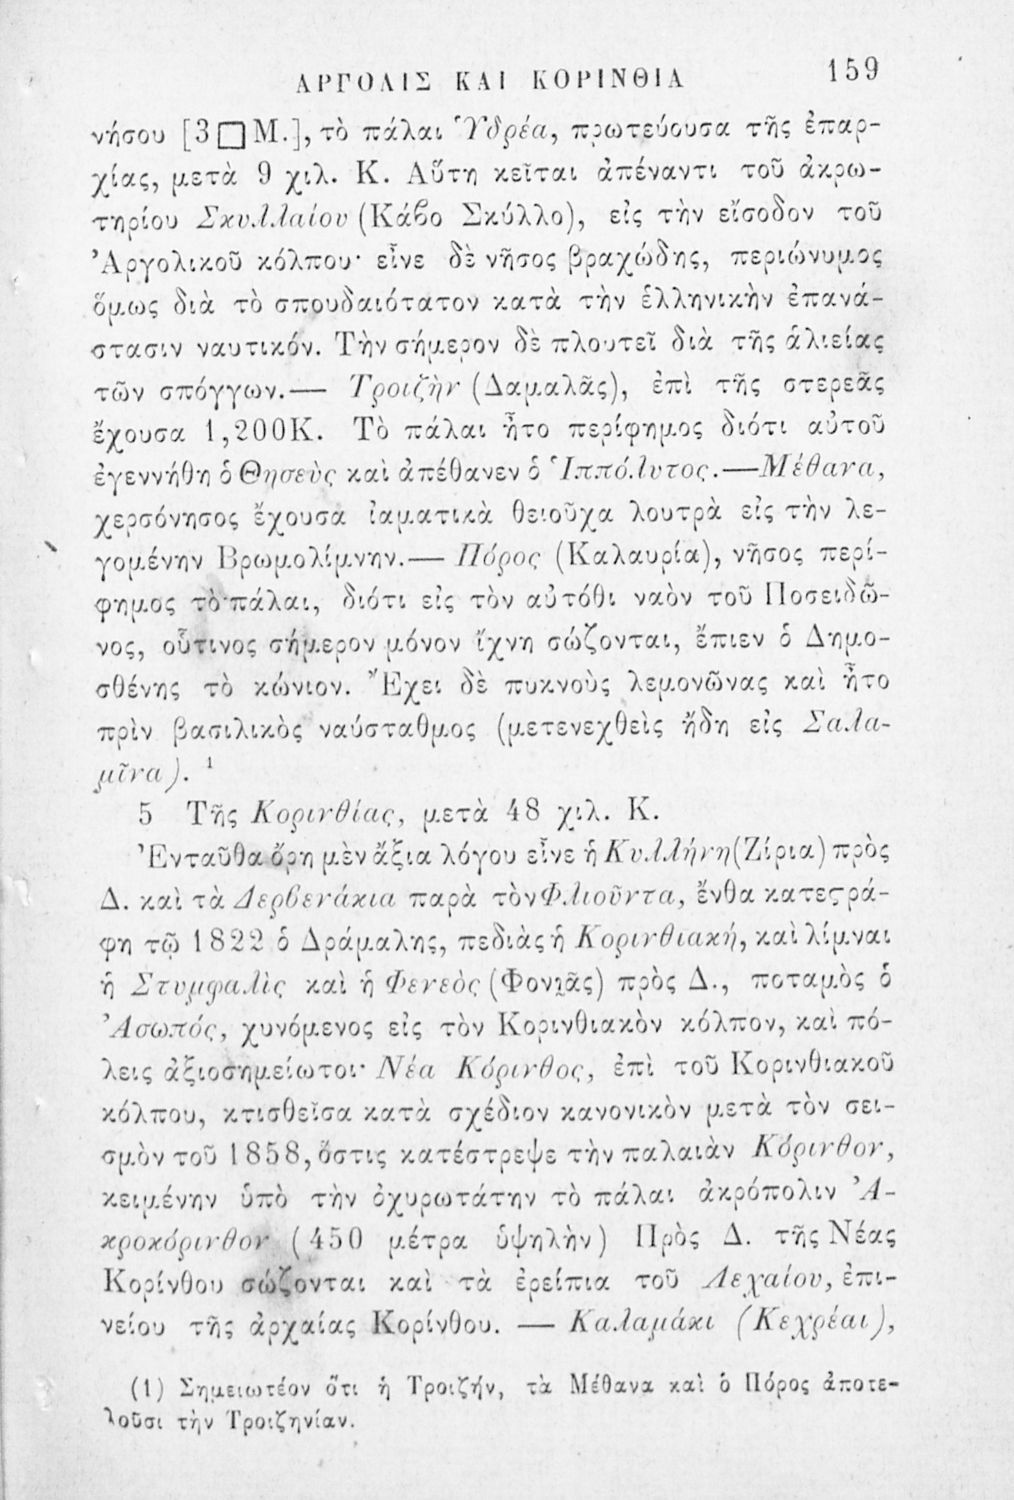 ΑΡΓΟΛΙΣ ΚΑΙ ΚΟΡΙΝΘΙΑ 159
νήσου [3 □ Μ.], τὸ πάλαι Ὑδρέα, πρωτεύουσα τῆς ἐπαρ-
χίας, μετὰ 9 χιλ. Κ. Αὕτη κεῖται ἀπέναντι τοῦ ἀκρω-
τηρίου Σκυλλαίου (Κάβο Σκύλλο), εἰς τὴν εἴσοδον τοῦ
Ἀργολικοῦ κόλπου· εἶνε δὲ νῆσος βραχώδης, περιώνυμος
ὅμως διὰ τὸ σπουδαιότατον κατὰ τὴν ἑλληνικὴν ἐπανά-
στασιν ναυτικόν. Τὴν σήμερον δὲ πλουτεῖ διὰ τῆς ἁλιείας
τῶν σπόγγων.— Τροιζὴν (Δαμαλᾶς), ἐπὶ τῆς στερεᾶς
ἔχουσα 1,200Κ. Τὸ πάλαι ἦτο περίφημος διότι αὐτοῦ
ἐγεννήθη ὁ Θησεὺς καὶ ἀπέθανεν ὁ Ἱππόλυτος.—Μέθανα,
χερσόνησος ἔχουσα ἰαματικὰ θειοῦχα λουτρὰ εἰς τὴν λε-
γομένην Βρωμολίμνην.— Πόρος (Καλαυρία), νῆσος περί-
φημος τὸ πάλαι, διότι εἰς τὸν αὐτόθι ναὸν τοῦ Ποσειδῶ-
νος, οὗτινος σήμερον μόνον ἴχνη σώζονται, ἔπιεν ὁ Δημο-
σθένης τὸ κώνιον. Ἔχει δὲ πυκνοὺς λεμονῶνας καὶ ἦτο
πρὶν βασιλικὸς ναύσταθμος (μετενεχθεὶς ἤδη εἰς Σαλα-
μῖνα). ¹
5 Τῆς Κορινθίας, μετὰ 48 χιλ. Κ.
Ἐνταῦθα ὄρη μὲν ἄξια λόγου εἶνε ἡ Κυλλήνη (Ζίρια) πρὸς
Δ. καὶ τὰ Δερβενάκια παρὰ τὸν Φλιοῦντα, ἔνθα κατεστρά-
φη τῷ 1822 ὁ Δράμαλης, πεδιὰς ἡ Κορινθιακή, καὶ λίμναι
ἡ Στυμφαλὶς καὶ ἡ Φενεὸς (Φονιᾶς) πρὸς Δ., ποταμὸς ὁ
Ἀσωπός, χυνόμενος εἰς τὸν Κορινθιακὸν κόλπον, καὶ πό-
λεις ἀξιοσημείωτοι· Νέα Κόρινθος, ἐπὶ τοῦ Κορινθιακοῦ
κόλπου, κτισθεῖσα κατὰ σχέδιον κανονικὸν μετὰ τὸν σει-
σμὸν τοῦ 1858, ὅστις κατέστρεψε τὴν παλαιὰν Κόρινθον,
κειμένην ὑπὸ τὴν ὀχυρωτάτην τὸ πάλαι ἀκρόπολιν Ἀ-
κροκόρινθον (450 μέτρα ὑψηλὴν) Πρὸς Δ. τῆς Νέας
Κορίνθου σώζονται καὶ τὰ ἐρείπια τοῦ Λεχαίου, ἐπι-
νείου τῆς ἀρχαίας Κορίνθου. — Καλαμάκι (Κεχρέαι),
(1) Σημειωτέον ὅτι ἡ Τροιζήν, τὰ Μέθανα καὶ ὁ Πόρος ἀποτε-
λοῦσι τὴν Τροιζηνίαν.